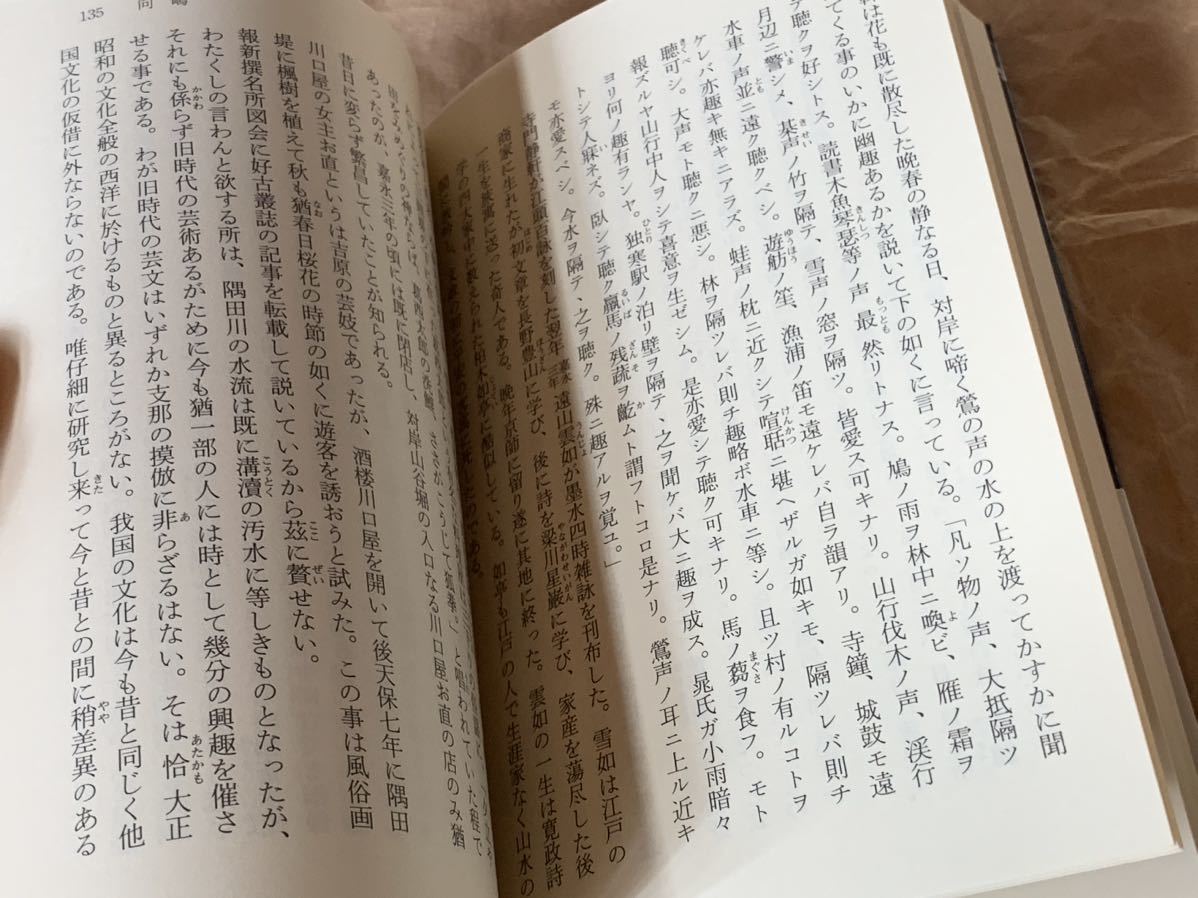 軒は花も既に散尽した晩春の静なる日、対岸に啼く鶯の声の水の上を渡ってかすかに聞
てくる事のいかに幽趣あるかを説いて下の如くに言っている。「凡ソ物ノ声、大抵隔ツ
テ聴クヲ好シトス。読書木魚琴瑟等ノ声最然リトナス。鳩ノ雨ヲ林中ニ喚ビ、雁ノ霜ヲ
月辺ニ警シメ、棊声ノ竹ヲ隔テ、雪声ノ窓ヲ隔ツ。皆愛ス可キナリ。山行伐木ノ声、渓行
水車ノ声並ニ遠ク聴クベシ。遊舫ノ笙、漁浦ノ笛モ遠ケレバ自ラ韻アリ。寺鐘、城鼓モ遠
ケレバ亦趣キ無キニアラズ。蛙声ノ枕ニ近クシテ喧聒ニ堪ヘザルガ如キモ、隔ツレバ則チ
聴可シ。大声モト聴クニ悪シ。林ヲ隔ツレバ則チ趣略ボ水車ニ等シ。且ツ村ノ有ルコトヲ
報ズルヤ山行中人ヲシテ喜意ヲ生ゼシム。是亦愛シテ聴ク可キナリ。馬ノ蒭ヲ食フ。モト
ヨリ何ノ趣有ランヤ。独寒駅ノ泊リ壁ヲ隔テ、之ヲ聞ケバ大ニ趣ヲ成ス。晁氏ガ小雨暗々
トシテ人寐ネズ。臥シテ聴ク羸馬ノ残蔬ヲ齕ムト謂フトコロ是ナリ。鶯声ノ耳ニ上ル近キ
モ亦愛スベシ。今水ヲ隔テ、之ヲ聴ク。殊ニ趣アルヲ覚ユ。」
寺門静軒が江頭百詠を刻した翌年 嘉永三年 遠山雲如が墨水四時雑詠を刊布した。雪如は江戸の
商家に生れたが初文章を長野豊山に学び、後に詩を梁川星巌に学び、家産を蕩尽した後
一生を旅寓に送った奇人である。晩年京師に留り遂に其地に終った。雲如の一生は寛政詩
学の四大家中に数えられた柏木如亭に酷似している。如亭も江戸の人で生涯家なく山水の
こうじて狐拳。」と唱われていた程で、
川口屋の女主お直というは吉原の芸妓であったが、酒楼川口屋を開いて後天保七年に隅田
堤に楓樹を植えて秋も猶春日桜花の時節の如くに遊客を誘おうと試みた。この事は風俗画
報新撰名所図会に好古叢誌の記事を転載して説いているから茲に贅せない。
わたくしの言わんと欲する所は、隅田川の水流は既に溝瀆の汚水に等しきものとなったが、
それにも係らず旧時代の芸術あるがために今も猶一部の人には時として幾分の興趣を催さ
せる事である。わが旧時代の芸文はいずれか支那の摸倣に非らざるはない。そは恰大正
昭和の文化全般の西洋に於けるものと異るところがない。我国の文化は今も昔と同じく他
国文化の仮借に外ならないのである。唯仔細に研究し来って今と昔との間に稍差異のある
135
向嶋